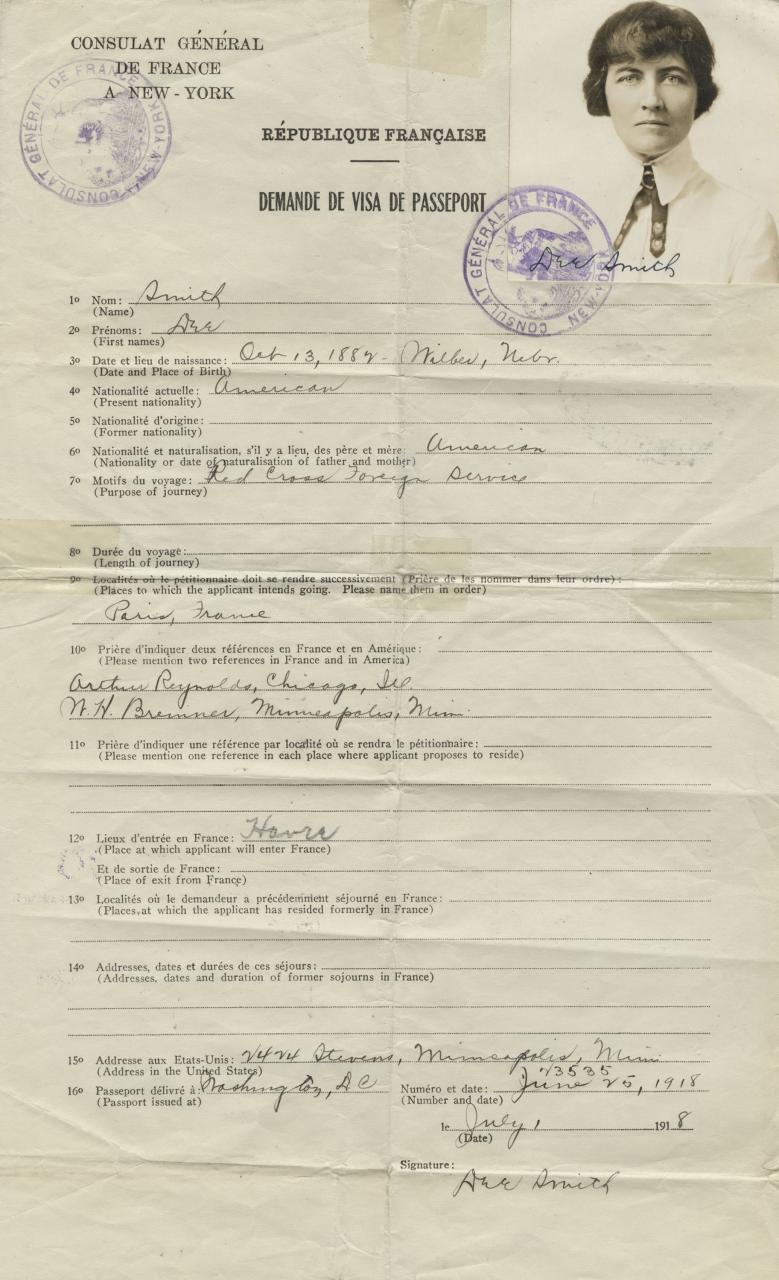 CONSULAT GÉNÉRAL
DE FRANCE
A NEW-YORK
CONSULAT GÉNÉRAL DE FRANCE NEW-YORK
RÉPUBLIQUE FRANÇAISE
DEMANDE DE VISA DE PASSEPORT
CONSULAT GÉNÉRAL DE FRANCE NEW-YORK
Dee Smith
1o Nom: Smith
(Name)
2o Prénoms: Dee
(First names)
3o Date et lieu de naissance: Oct 13, 1882 - Wilber, Nebr.
(Date and Place of Birth)
4o Nationalité actuelle: American
(Present nationality)
5o Nationalité d'origine:
(Former nationality)
6o Nationalité et naturalisation, s'il y a lieu, des père et mère: American
(Nationality or date of naturalisation of father and mother)
7o Motifs du voyage: Red Cross Foreign Service
(Purpose of journey)
8o Durée du voyage:
(Length of journey)
9o Localités où le pétitionnaire doit se rendre successivement (Prière de les nommer dans leur ordre):
(Places to which the applicant intends going. Please name them in order)
Paris, France
10o Prière d'indiquer deux références en France et en Amérique:
(Please mention two references in France and in America)
Arthur Reynolds, Chicago, Ill.
W.H. Bremner, Minneapolis, Minn.
11o Prière d'indiquer une référence par localité où se rendra le pétitionnaire:
(Please mention one reference in each place where applicant proposes to reside)
12o Lieux d'entrée en France: Havre
(Place at which applicant will enter France)
Et de sortie de France:
(Place of exit from France)
13o Localités où le demandeur a précédemment séjourné en France:
(Places at which the applicant has resided formerly in France)
14o Addresses, dates et durées de ces séjours:
(Addresses, dates and duration of former sojourns in France)
15o Addresse aux Etats-Unis: 2424 Stevens, Minneapolis, Minn.
(Address in the United States)
23535
16o Passeport délivré à: Washington, DC Numéro et date: June 25, 1918
(Passport issued at) (Number and date)
le July 1 1918
(Date)
Signature:
Dee Smith